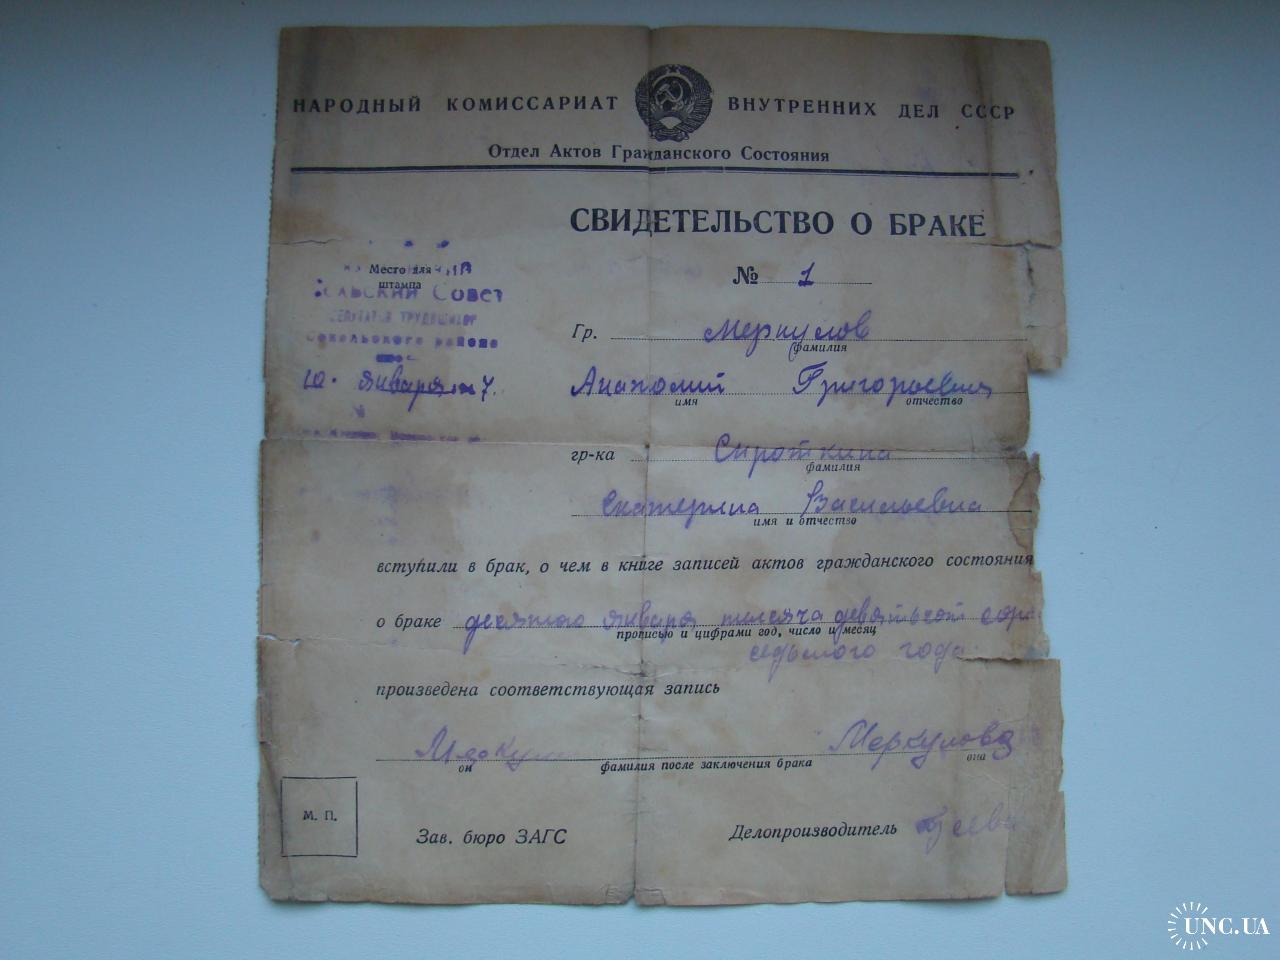 НАРОДНЫЙ КОМИССАРИАТ ВНУТРЕННИХ ДЕЛ СССР
Отдел Актов Гражданского Состояния
СВИДЕТЕЛЬСТВО О БРАКЕ
Место для
штампа
Совет
района
№ 1
Гр. Меркулов
фамилия
10. января 7.
Анатолий Григорьевич
имя отчество
гр-ка Сироткина
фамилия
Екатерина Васильевна
имя и отчество
вступили в брак, о чем в книге записей актов гражданского состояния
о браке десятого января тысяча девятьсот соро
прописью и цифрами год, число и месяц
седьмого года
произведена соответствующая запись
Меркулова
он фамилия после заключения брака она
М. П.
Зав. бюро ЗАГС
Делопроизводитель
UNC.UA